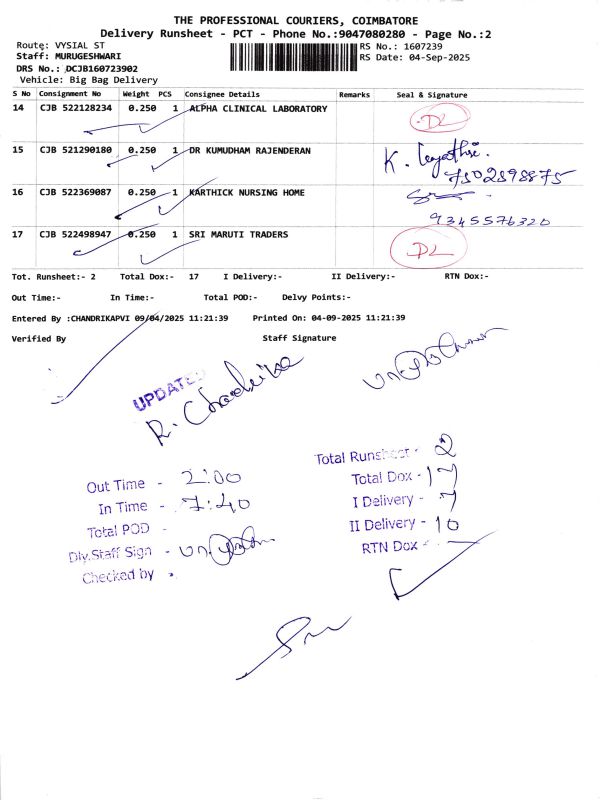 THE PROFESSIONAL COURIERS, COIMBATORE
Delivery Runsheet - PCT - Phone No.:9047080280 - Page No.:2
Route: VYSIAL ST RS No.: 1607239
Staff: MURUGESHWARI RS Date: 04-Sep-2025
DRS No.: DCJB160723902
Vehicle: Big Bag Delivery
S No Consignment No Weight PCS Consignee Details Remarks Seal & Signature
14 CJB 522128234 0.250 1 ALPHA CLINICAL LABORATORY DL
15 CJB 521290180 0.250 1 DR KUMUDHAM RAJENDERAN K.
7502898875
16 CJB 522369087 0.250 1 KARTHICK NURSING HOME
9345576320
17 CJB 522498947 0.250 1 SRI MARUTI TRADERS DL
Tot. Runsheet:- 2 Total Dox:- 17 I Delivery:- II Delivery:- RTN Dox:-
Out Time:- In Time:- Total POD:- Delvy Points:-
Entered By :CHANDRIKAPVI 09/04/2025 11:21:39 Printed On: 04-09-2025 11:21:39
Verified By Staff Signature
UPDATED
R.
Total Runsheet - 2
Out Time - 2:00 Total Dox - 17
In Time - 7:40 I Delivery - 7
Total POD - II Delivery - 10
Dly.Staff Sign - RTN Dox -
Checked by -